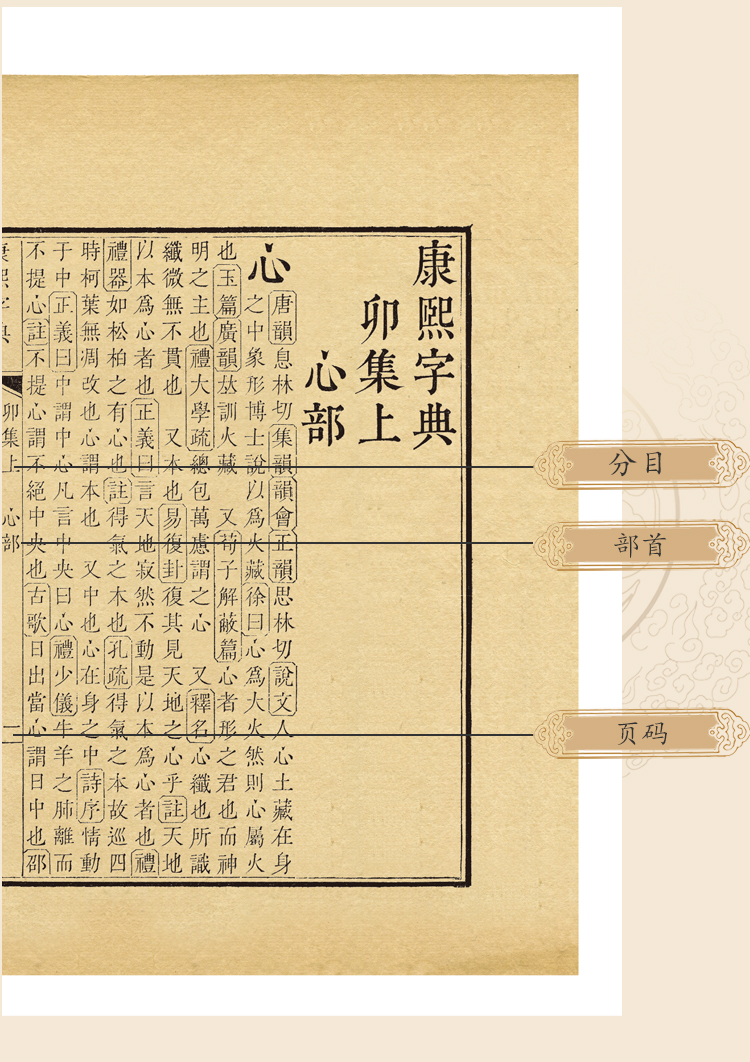 康熙字典
卯集上
心部
心
唐韻息林切集韻韻會正韻思林切說文人心土藏在身
之中象形博士說以爲火藏徐曰心爲大火然則心屬火
也玉篇廣韻𠀤訓火藏 又荀子解蔽篇心者形之君也而神
明之主也禮大學疏總包萬慮謂之心 又釋名心纖也所識
纖微無不貫也 又本也易復卦復其見天地之心乎註天地
以本爲心者也正義曰言天地寂然不動是以本爲心者也禮
禮器如松柏之有心也註得氣之本也孔疏得氣之本故巡四
時柯葉無凋改也心謂本也 又中也心在身之中詩序情動
于中正義曰中謂中心凡言中央曰心禮少儀牛羊之肺離而
不提心註不提心謂不絕中央也古歌日出當心謂日中也邵
康熙字典
卯集上
心部
一
分目
部首
页码